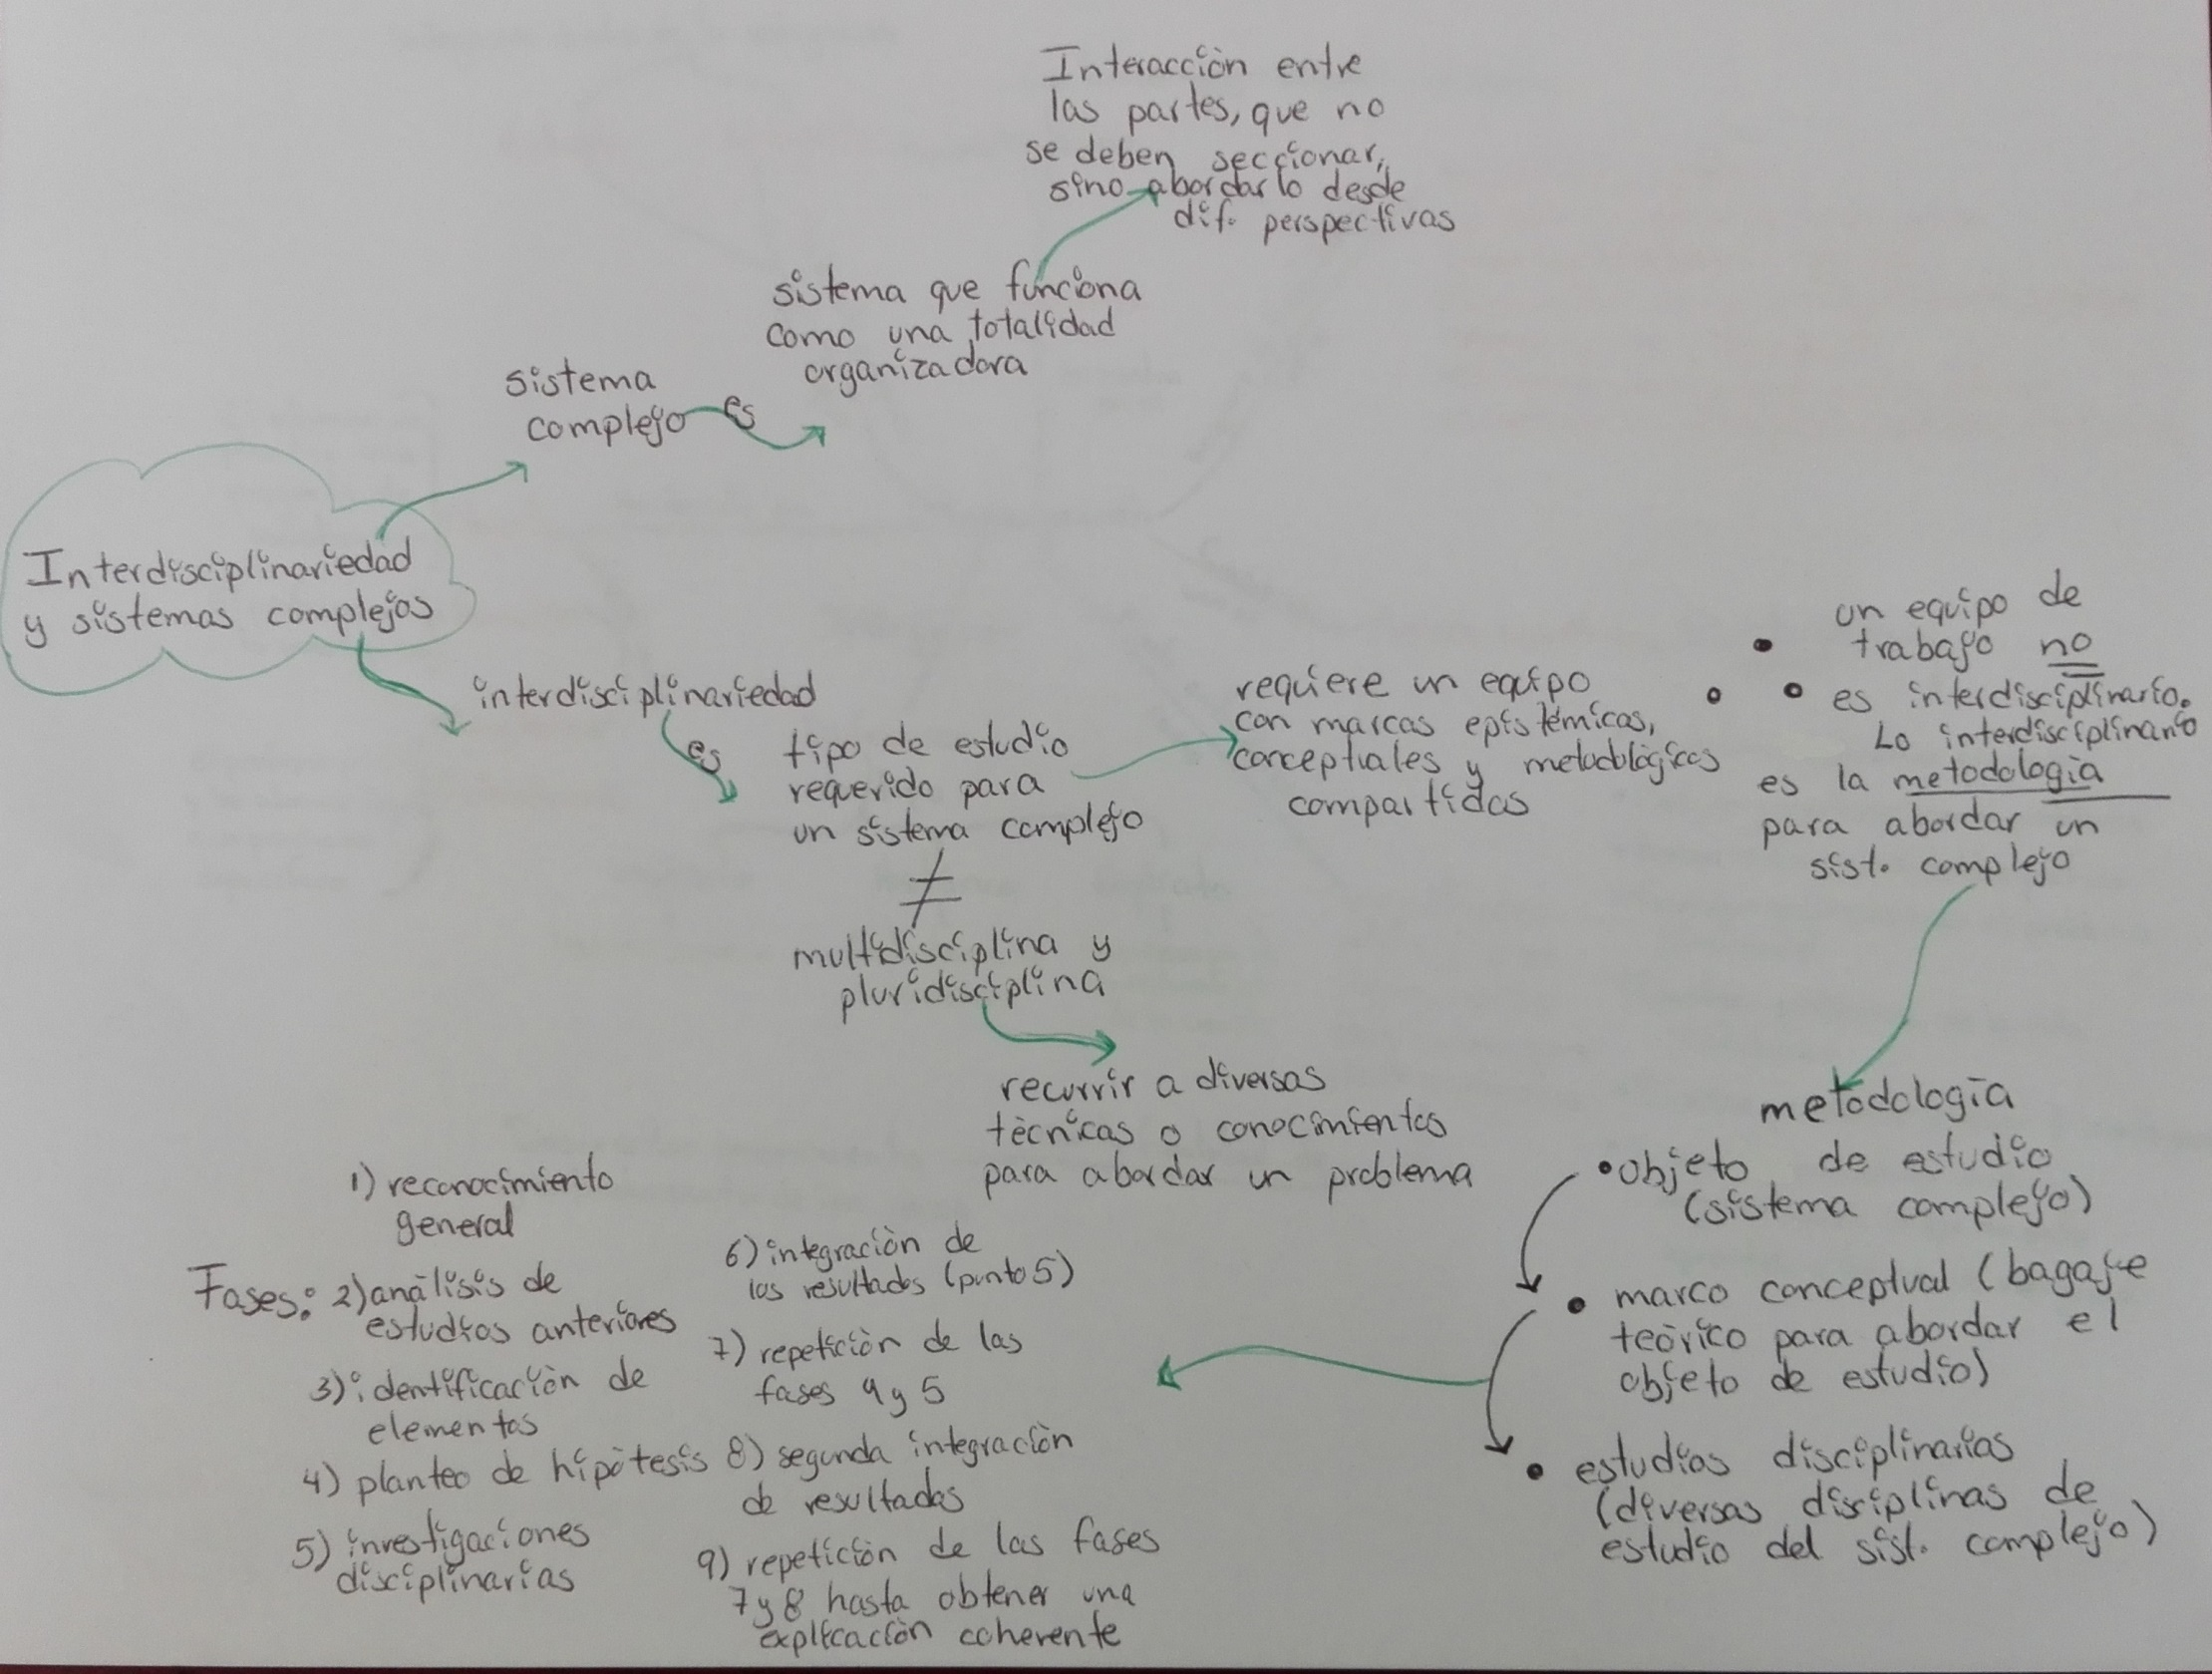 Interacción entre
las partes, que no
se deben seccionar,
sino abordarlo desde
dif. perspectivas
sistema que funciona
como una totalidad
organizadora
sistema
complejo
es
Interdisciplinariedad
y sistemas complejos
interdisciplinariedad
es
tipo de estudio
requerido para
un sistema complejo
≠
multidisciplina y
pluridisciplina
recurrir a diversas
técnicas o conocimientos
para abordar un problema
requiere un equipo
con marcas epistémicas,
conceptuales y metodológicos
compartidos
∴ un equipo de
trabajo no
es interdisciplinario.
Lo interdisciplinario
es la metodología
para abordar un
sist. complejo
metodología
• objeto de estudio
(sistema complejo)
• marco conceptual (bagaje
teórico para abordar el
objeto de estudio)
• estudios disciplinarios
(diversas disciplinas de
estudio del sist. complejo)
Fases:
1) reconocimiento
general
2) análisis de
estudios anteriores
3) identificación de
elementos
4) planteo de hipótesis
5) investigaciones
disciplinarias
6) integración de
los resultados (punto 5)
7) repetición de las
fases 4 y 5
8) segunda integración
de resultados
9) repetición de las fases
7 y 8 hasta obtener una
explicación coherente